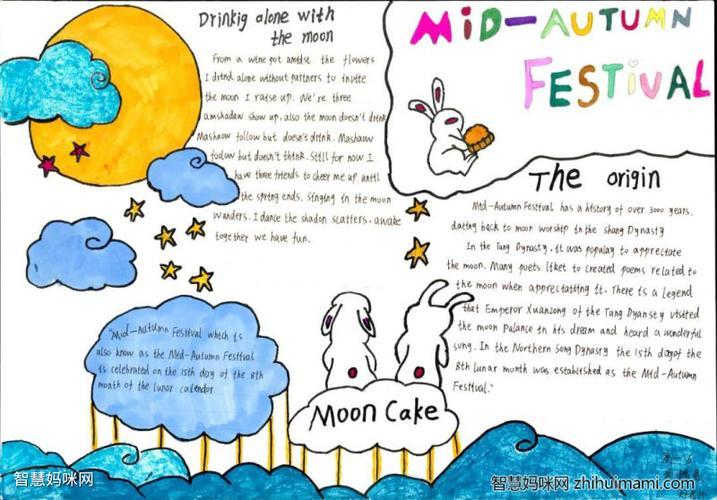 MiD-AUTUMN
FESTiVAL
Drinkig alone with
the moon
From a wine pot amidst the flowers
I drind alone without partners to invite
the moon I raise up. We're three
amshadaw show up, also the moon doesn't drink
Mashaow follow but doesn't drink. Mashaow
follow but doesn't think. Still for now I
have three friends to cheer me up until
the spring ends. Singing in the moon
wanders. I dance the shadon scatters. awake
together we have fun.
The origin
Mid-Autumn Festival has a history of over 3000 years.
dating back to moon worship in the shang Dynasty
In the Tang Dynasty, it was populay to appreciate
the moon. Many poets liket to created poems related to
the moon when appreciatiing it. There is a legend
that Emperor Xuanzong of the Tang Dyansty visited
the moon Palance in his dream and heard a wnderful
song. In the Northern Song Dynasty the 15th dayof the
8th lunar month was established as the Mid-Autumn
Festival."
"Mid-Autumn Festival which is
also know as the Mid-Autumn Festival
is celebrated on the 15th day of the 8th
month of the lunar calendar.
Moon Cake
智慧妈咪网
智慧妈咪网 zhihuimami.com